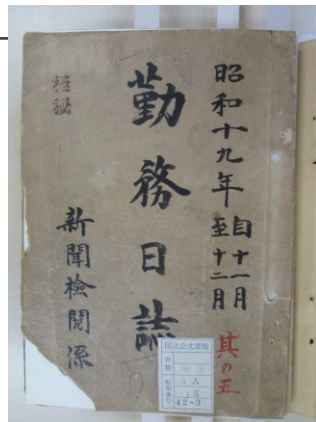 昭和十九年
自十一月
至十二月
其の五
勤務日誌
極秘
新聞檢閲係
国立公文書館
分類
配架番号
3A
15
42-3